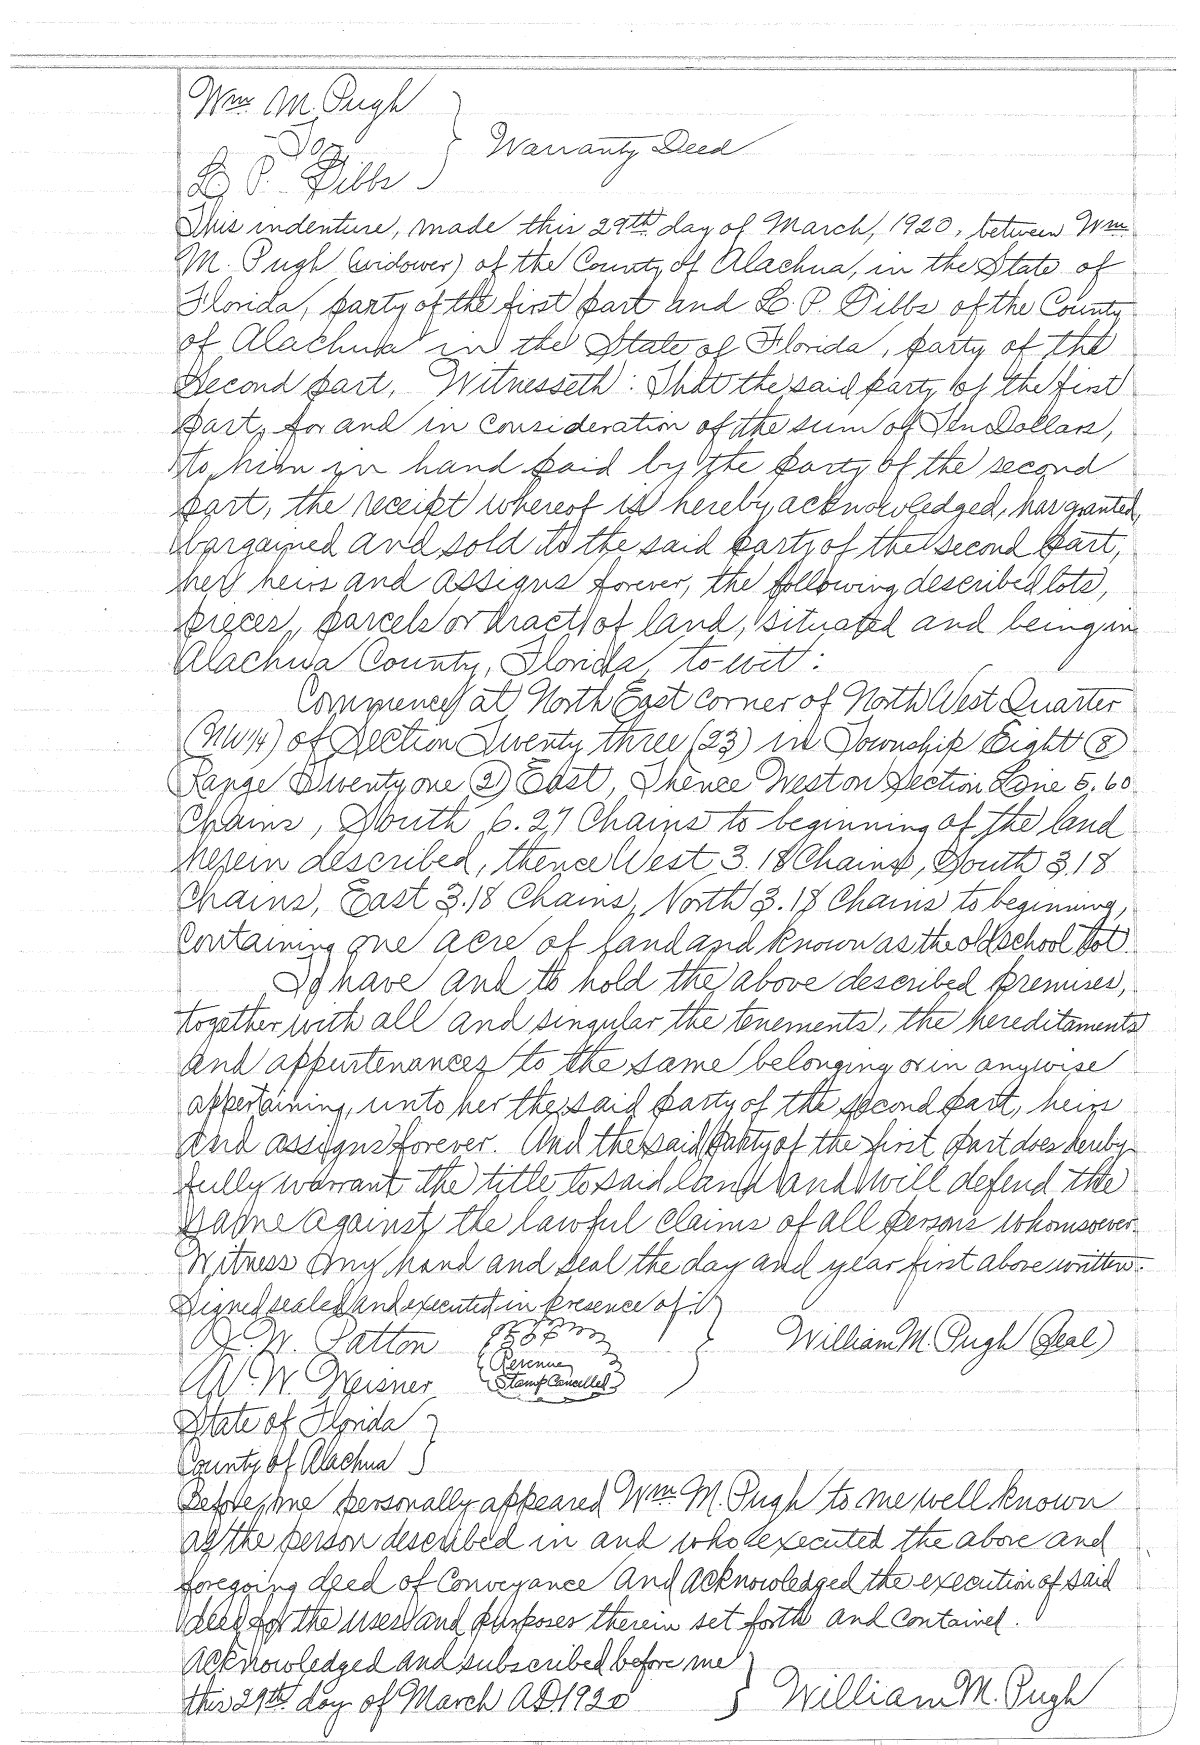 Wm M. Pugh
To
L. P. Gibbs
Warranty Deed
This indenture, made this 29th day of March, 1920, between Wm
M. Pugh (widower) of the County of Alachua, in the State of
Florida, party of the first part and L. P. Gibbs of the County
of Alachua in the State of Florida, party of the
Second part, Witnesseth: That the said party of the first
part, for and in consideration of the sum of Ten Dollars,
to him in hand paid by the party of the second
part, the receipt whereof is hereby acknowledged, has granted,
bargained and sold to the said party of the second part,
her heirs and assigns forever, the following described lots,
pieces, parcels or tract of land, situated and being in
Alachua County, Florida, to-wit:
Commence at North East corner of North West Quarter
(NW¼) of Section Twenty three (23) in Township Eight (8)
Range Twenty one (21) East, Thence West on Section Line 5.60
Chains, South 6.27 Chains to beginning of the land
herein described, thence West 3.18 Chains, South 3.18
Chains, East 3.18 Chains, North 3.18 Chains to beginning,
Containing one acre of land and known as the old school lot.
To have and to hold the above described premises,
together with all and singular the tenements, the hereditaments
and appurtenances to the same belonging or in anywise
appertaining, unto her the said party of the second part, heirs
and assigns forever. And the said party of the first part does hereby
fully warrant the title to said land and will defend the
same against the lawful claims of all persons whomsoever.
Witness my hand and seal the day and year first above written.
Signed sealed and executed in presence of:
J. W. Patton
William M. Pugh (Seal)
Revenue
Stamp Cancelled
W. W. Weisner
State of Florida
County of Alachua
Before me personally appeared Wm M. Pugh to me well known
as the person described in and who executed the above and
foregoing deed of Conveyance and acknowledged the execution of said
deed for the uses and purposes therein set forth and contained.
Acknowledged and subscribed before me
this 29th day of March A.D. 1920
William M. Pugh